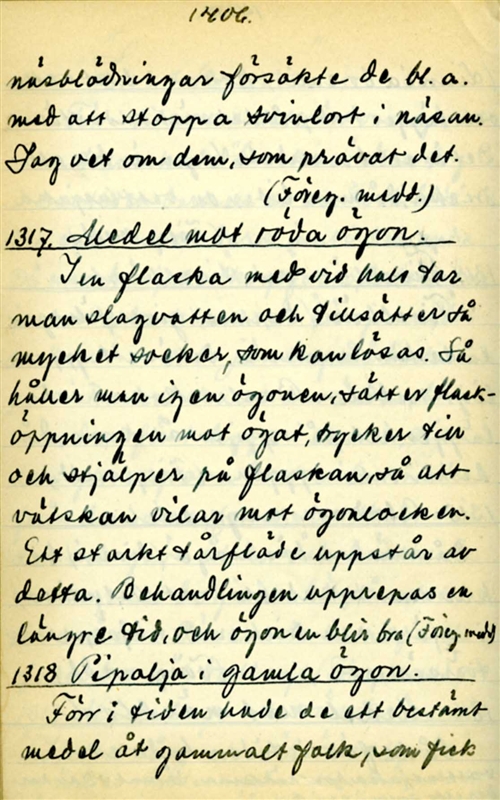 1406.
näsblödningar försökte de bl. a.
med att stoppa svinlort i näsan.
Jag vet om dem, som prövat det.
(Föreg. medd.)
1317. Medel mot röda ögon.
I en flaska med vid hals tar
man slagvatten och tillsätter så
mycket socker, som kan lösas. Så
håller man igen ögonen, sätter flask-
öppningen mot ögat, trycker till
och stjälper på flaskan, så att
vätskan vilar mot ögonlocken.
Ett starkt tårflöde uppstår av
detta. Behandlingen upprepas en
längre tid, och ögonen blir bra (Föreg. medd)
1318 Pipolja i gamla ögon.
Förr i tiden hade de ett bestämt
medel åt gammalt folk, som fick